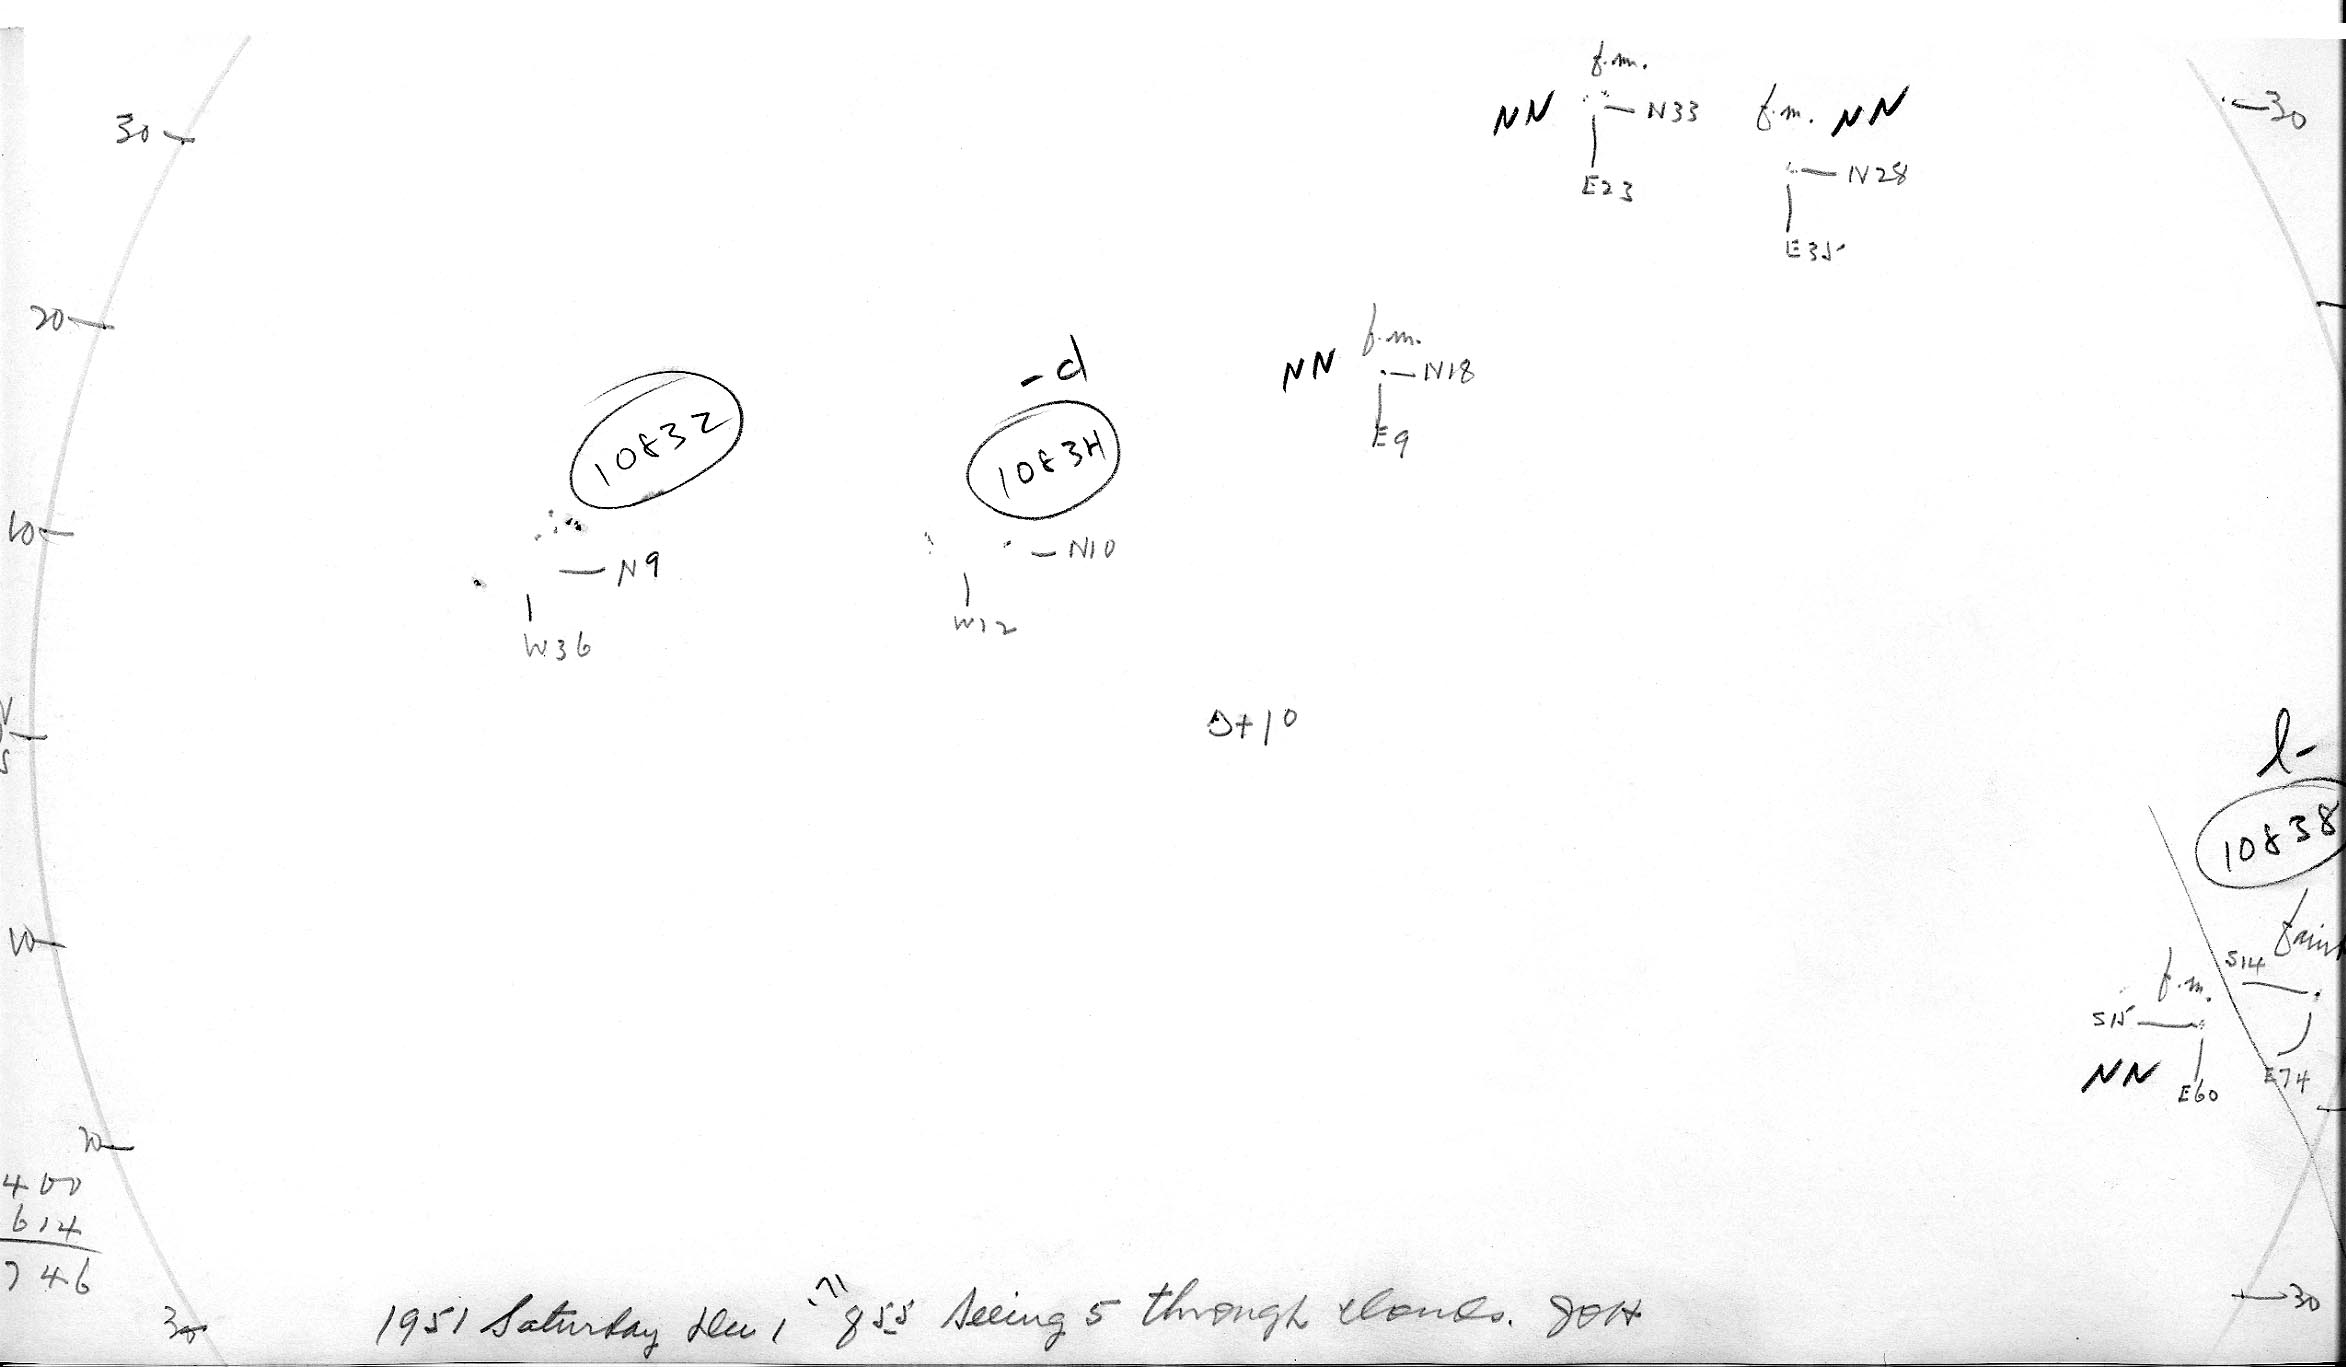 f.m.
NN N33
E23
f.m. NN
N28
E35
30
30
20
f.m.
NN N18
E9
-d
10832
1083H
10
N9
W36
N10
W12
N
0
S
D+1°
l-
10838
faint
S14
E74
f.m.
S15
NN E60
10
20
400
614
746
30
30
1951 Saturday Dec 1 855 Seeing 5 through clouds. JOH